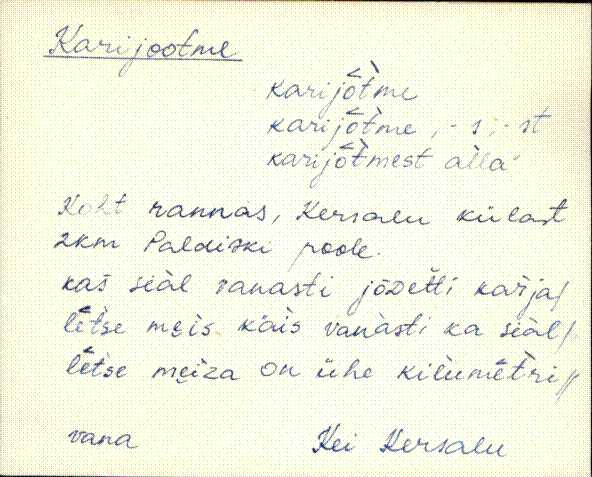 Karijootme
karijò͔tme
karijò͔tme, -s, -st
karijò͔tmest alla
Koht rannas, Kersalu külast
2km Paldiski poole.
kas seàl vanasti jõzeťti kaŕja/
lètse męis käis vanàsti ka seàl/.
lètse męiza on ühe kilumètri//
vana Kei Kersalu